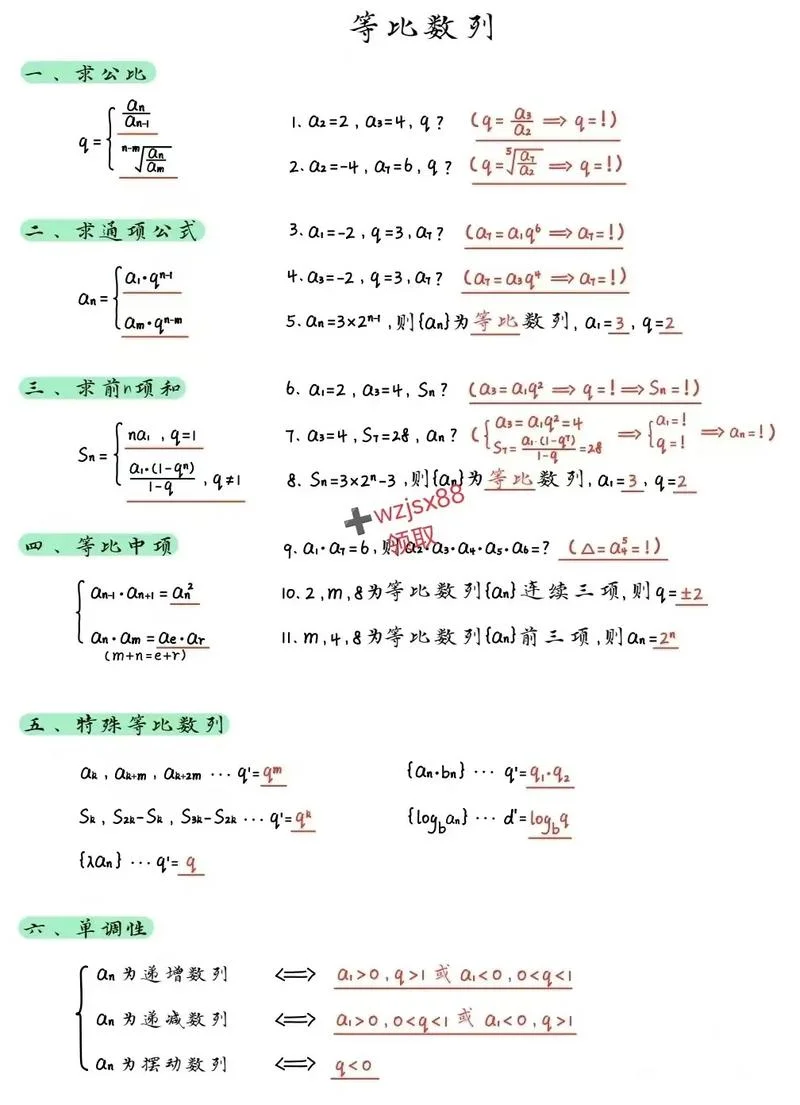 等比数列
一、求公比
q = { an/an-1
n-m√(an/am)
1. a₂=2, a₃=4, q? (q=a₃/a₂ ⟹ q=!)
2. a₂=-4, a₇=6, q? (q=⁵√(a₇/a₂) ⟹ q=!)
二、求通项公式
an = { a₁·qⁿ⁻¹
am·qⁿ⁻ᵐ
3. a₁=-2, q=3, a₇? (a₇=a₁q⁶ ⟹ a₇=!)
4. a₃=-2, q=3, a₇? (a₇=a₃q⁴ ⟹ a₇=!)
5. an=3×2ⁿ⁻¹, 则{an}为等比数列, a₁=3, q=2
三、求前n项和
Sn = { na₁, q=1
a₁·(1-qⁿ)/1-q, q≠1
6. a₁=2, a₃=4, Sn? (a₃=a₁q² ⟹ q=! ⟹ Sn=!)
7. a₃=4, S₇=28, an? ({ a₃=a₁q²=4 S₇=a₁·(1-q⁷)/1-q=28 ⟹ { a₁=! q=! ⟹ an=!)
8. Sn=3×2ⁿ-3, 则{an}为等比数列, a₁=3, q=2
➕wzjsx88
领取
四、等比中项
{ an-1·an+1=an²
an·am=ae·ar
(m+n=e+r)
9. a₁·a₇=6, 则a₂·a₃·a₄·a₅·a₆=? (△=a₄⁵=!)
10. 2, m, 8为等比数列{an}连续三项, 则q=±2
11. m, 4, 8为等比数列{an}前三项, 则an=2ⁿ
五、特殊等比数列
ak, ak+m, ak+2m ··· q'=qᵐ
{an·bn} ··· q'=q₁·q₂
Sk, S2k-Sk, S3k-S2k ··· q'=qᵏ
{log_b an} ··· d'=log_b q
{λan} ··· q'=q
六、单调性
{ an为递增数列 ⟺ a₁>0, q>1 或 a₁<0, 0<q<1
an为递减数列 ⟺ a₁>0, 0<q<1 或 a₁<0, q>1
an为摆动数列 ⟺ q<0